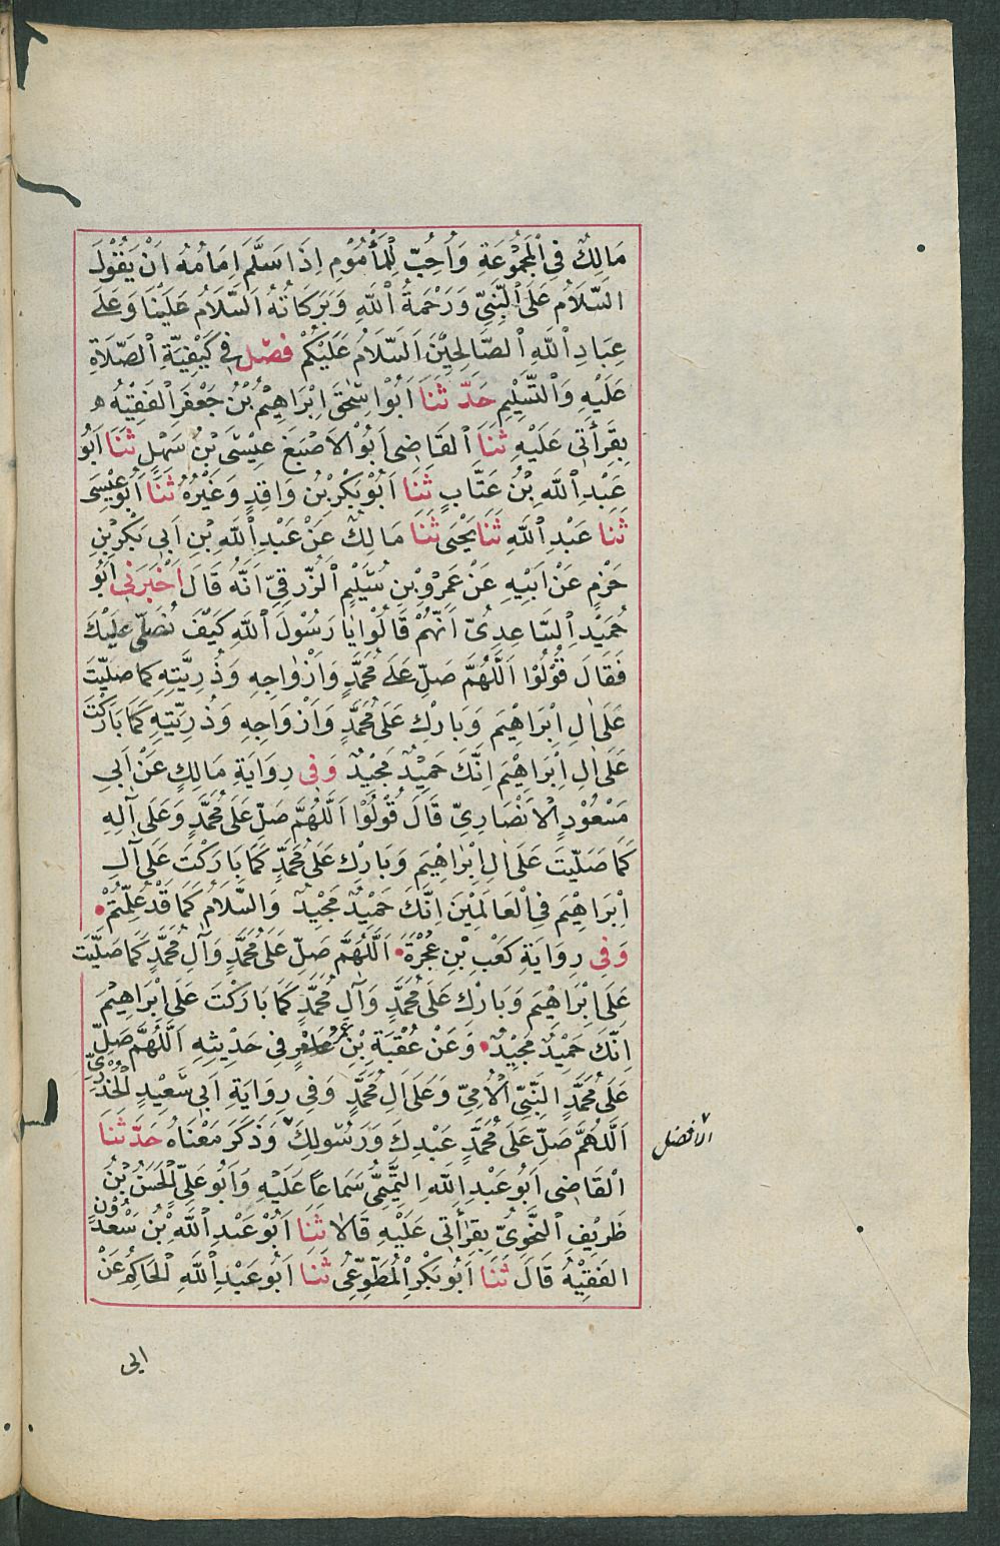 مَالِكٌ فِي الْمَجْمُوعَةِ وَاُحِبُّ لِلْمَأْمُوْمِ اِذَا سَلَّمَ اِمَامُهُ اَنْ يَقُوْلَ
السَّلَامُ عَلَى النَّبِيِّ وَرَحْمَةُ اللّٰهِ وَبَرَكَاتُهُ اَلسَّلَامُ عَلَيْنَا وَعَلَى
عِبَادِ اللّٰهِ الصَّالِحِيْنَ اَلسَّلَامُ عَلَيْكُمْ فصل في كَيْفِيَّةِ الصَّلَاةِ
عَلَيْهِ وَالتَّسْلِيْمِ حَدَّثَنَا اَبُوْ اِسْحٰقَ اِبْرَاهِيْمُ بْنُ جَعْفَرٍ الْفَقِيْهُ
بِقِرَأتِى عَلَيْهِ ثَنَا القَاضِى اَبُوْ الاَصْبَغ عِيْسٰى بْنُ سَهْلٍ ثَنَا اَبُو
عَبْدِ اللّٰهِ بْنُ عَتَّابٍ ثَنَا اَبُوْ بَكْرِ بْنُ وَاقِدٍ وَغَيْرُهُ ثَنَا اَبُو عِيْسَى
ثنا عَبْدُ اللّٰهِ ثَنَا يَحْيٰى ثَنَا مَالِكٌ عَنْ عَبْدِ اللّٰهِ بْنِ اَبِى بَكْرِ بْنِ
حَزْمٍ عَنْ اَبِيْهِ عَنْ عَمْرِو بْنِ سُلَيْمٍ الزُّرَقِيّ اَنَّهُ قَالَ اَخْبَرَنِى اَبُو
حُمَيْدٍ السَّاعِدِىّ اَنَّهُمْ قَالُوْا يَا رَسُوْلَ اللّٰهِ كَيْفَ نُصَلِّى عَلَيْكَ
فَقَالَ قُوْلُوْا اَللّٰهُمَّ صَلِّ عَلٰى مُحَمَّدٍ وَاَزْوَاجِهِ وَذُرِيَّتِهِ كما صَلَيْتَ
عَلٰى اٰلِ اِبْرَاهِيْمَ وَبَارِكْ عَلَى مُحَمَّدٍ وَاَزْوَاجِهِ وَذُرِيَّتِهِ كَمَا بَارَكْتَ
عَلَى اٰلِ اِبْرَاهِيْمَ اِنَّكَ حَمِيْدٌ مَجِيْدٌ وَفِى رِوَايَةِ مَالِكٍ عَنْ اَبِي
مَسْعُوْدٍ الاَنْصَارِيّ قَالَ قُوْلُوْا اَللّٰهُمَّ صَلِّ عَلَى مُحَمَّدٍ وَعَلَى آلِهِ
كَمَا صَلَّيْتَ عَلَى اٰلِ اِبْرَاهِيْمَ وَبَارِكْ عَلَى مُحَمَّدٍ كَمَا بَارَكْتَ عَلَى آلِ
اِبْرَاهِيْمَ فِي الْعَالَمِيْنَ اِنَّكَ حَمِيْدٌ مَجِيْدٌ وَالسَّلَامُ كَمَا قَدْ عُلِّمْتُمْ
وَفِى رِوَايَةِ كَعْبِ بْنِ عُجْرَةَ اَللّٰهُمَّ صَلِّ عَلَى مُحَمَّدٍ وَآلِ مُحَمَّدٍ كَمَا صَلَّيْتَ
عَلَى اِبْرَاهِيْمَ وَبَارِكْ عَلَى مُحَمَّدٍ وَآلِ مُحَمَّدٍ كَمَا بَارَكْتَ عَلَى اِبْرَاهِيْمَ
اِنَّكَ حَمِيْدٌ مَجِيْدٌ وَعَنْ عُقْبَةَ بْنِ فِى حَدِيْثِهِ اَللّٰهُمَّ صَلِّ
عَلَى مُحَمَّدٍ النَّبِيِّ الْاُمِيِّ وَعَلَى اٰلِ مُحَمَّدٍ وَفِى رِوَايَةِ اَبِى سَعِيْدٍ الْخُدْرِيِّ
اَللّٰهُمَّ صَلِّ عَلَى مُحَمَّدٍ عَبْدِكَ وَرَسُوْلِكَ وَذَكَرَ مَعْنَاهُ حَدَّثَنَا
الْقَاضِى اَبُو عَبْدِ اللّٰهِ التَّمِيْمِىُّ سَمَاعًا عَلَيْهِ وَاَبُو عَلِىّ الْحَسَنُ بْنُ
طَرِيْفٍ النَّحْوِىُّ بِقِرَأتِى عَلَيْهِ قَالَا ثَنَا اَبُوْ عَبْدِ اللّٰهِ بْنِ سَعْدُوْنٍ
الفَقِيْهُ قَالَ ثَنَا اَبُو بَكْرٍ الْمُطَّوِّعِى ثَنَا اَبُو عَبْدِ اللّٰهِ الْحَاكِمُ عَنْ
الافضل
ابى